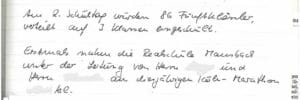 Am 2. Schultag wurden 86 Fünftklässler,
verteilt auf 3 Klassen eingeschult.
Erstmals nahm die Realschule
unter der Leitung von Herrn und
Herrn am diesjährigen Köln-Marathon
teil.